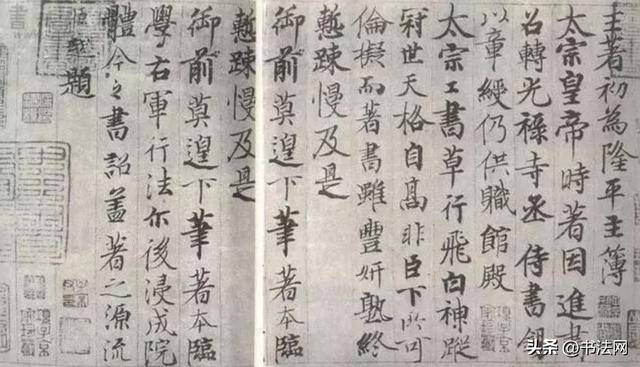 王著初為隆平主簿
太宗皇帝時著因進書
召轉光祿寺丞侍書錫
以章綬仍供職館殿
太宗工書草行飛白神蹤
冠世天格自高非臣下所可
倫擬而著書雖豐妍熟終
慙踈慢及是
御前莫遑下筆著本臨
慙踈慢及是
御前莫遑下筆著本臨
學右軍行法尒後浸成院
體今之書詔盖著之源流
題
头条 @书法网